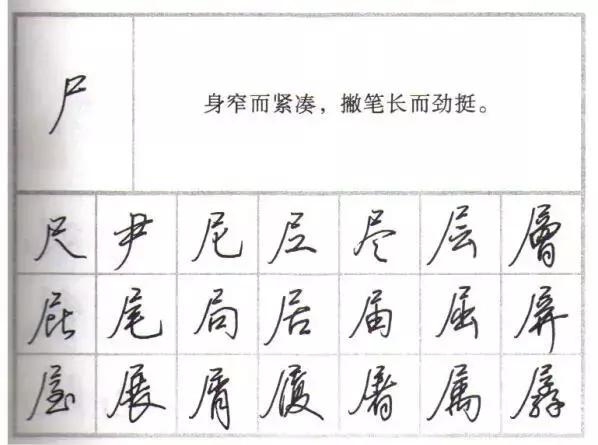 尸
身窄而紧凑，撇笔长而劲挺。
尺 尹 尼 尽 层 層
屁 尾 局 居 届 屈 屏
屋 展 屑 履 屠 属 孱